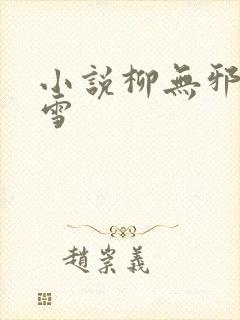 小說柳無邪
雪
趙崇義